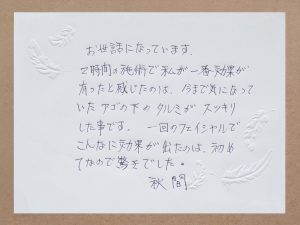 お世話になっています。
2時間の施術で私が一番効果が
有ったと感じたのは、今まで気になって
いたアゴの下のタルミがスッキリ
した事です。一回のフェイシャルで
こんなに効果が出たのは、初め
てなので驚きでした。
秋間